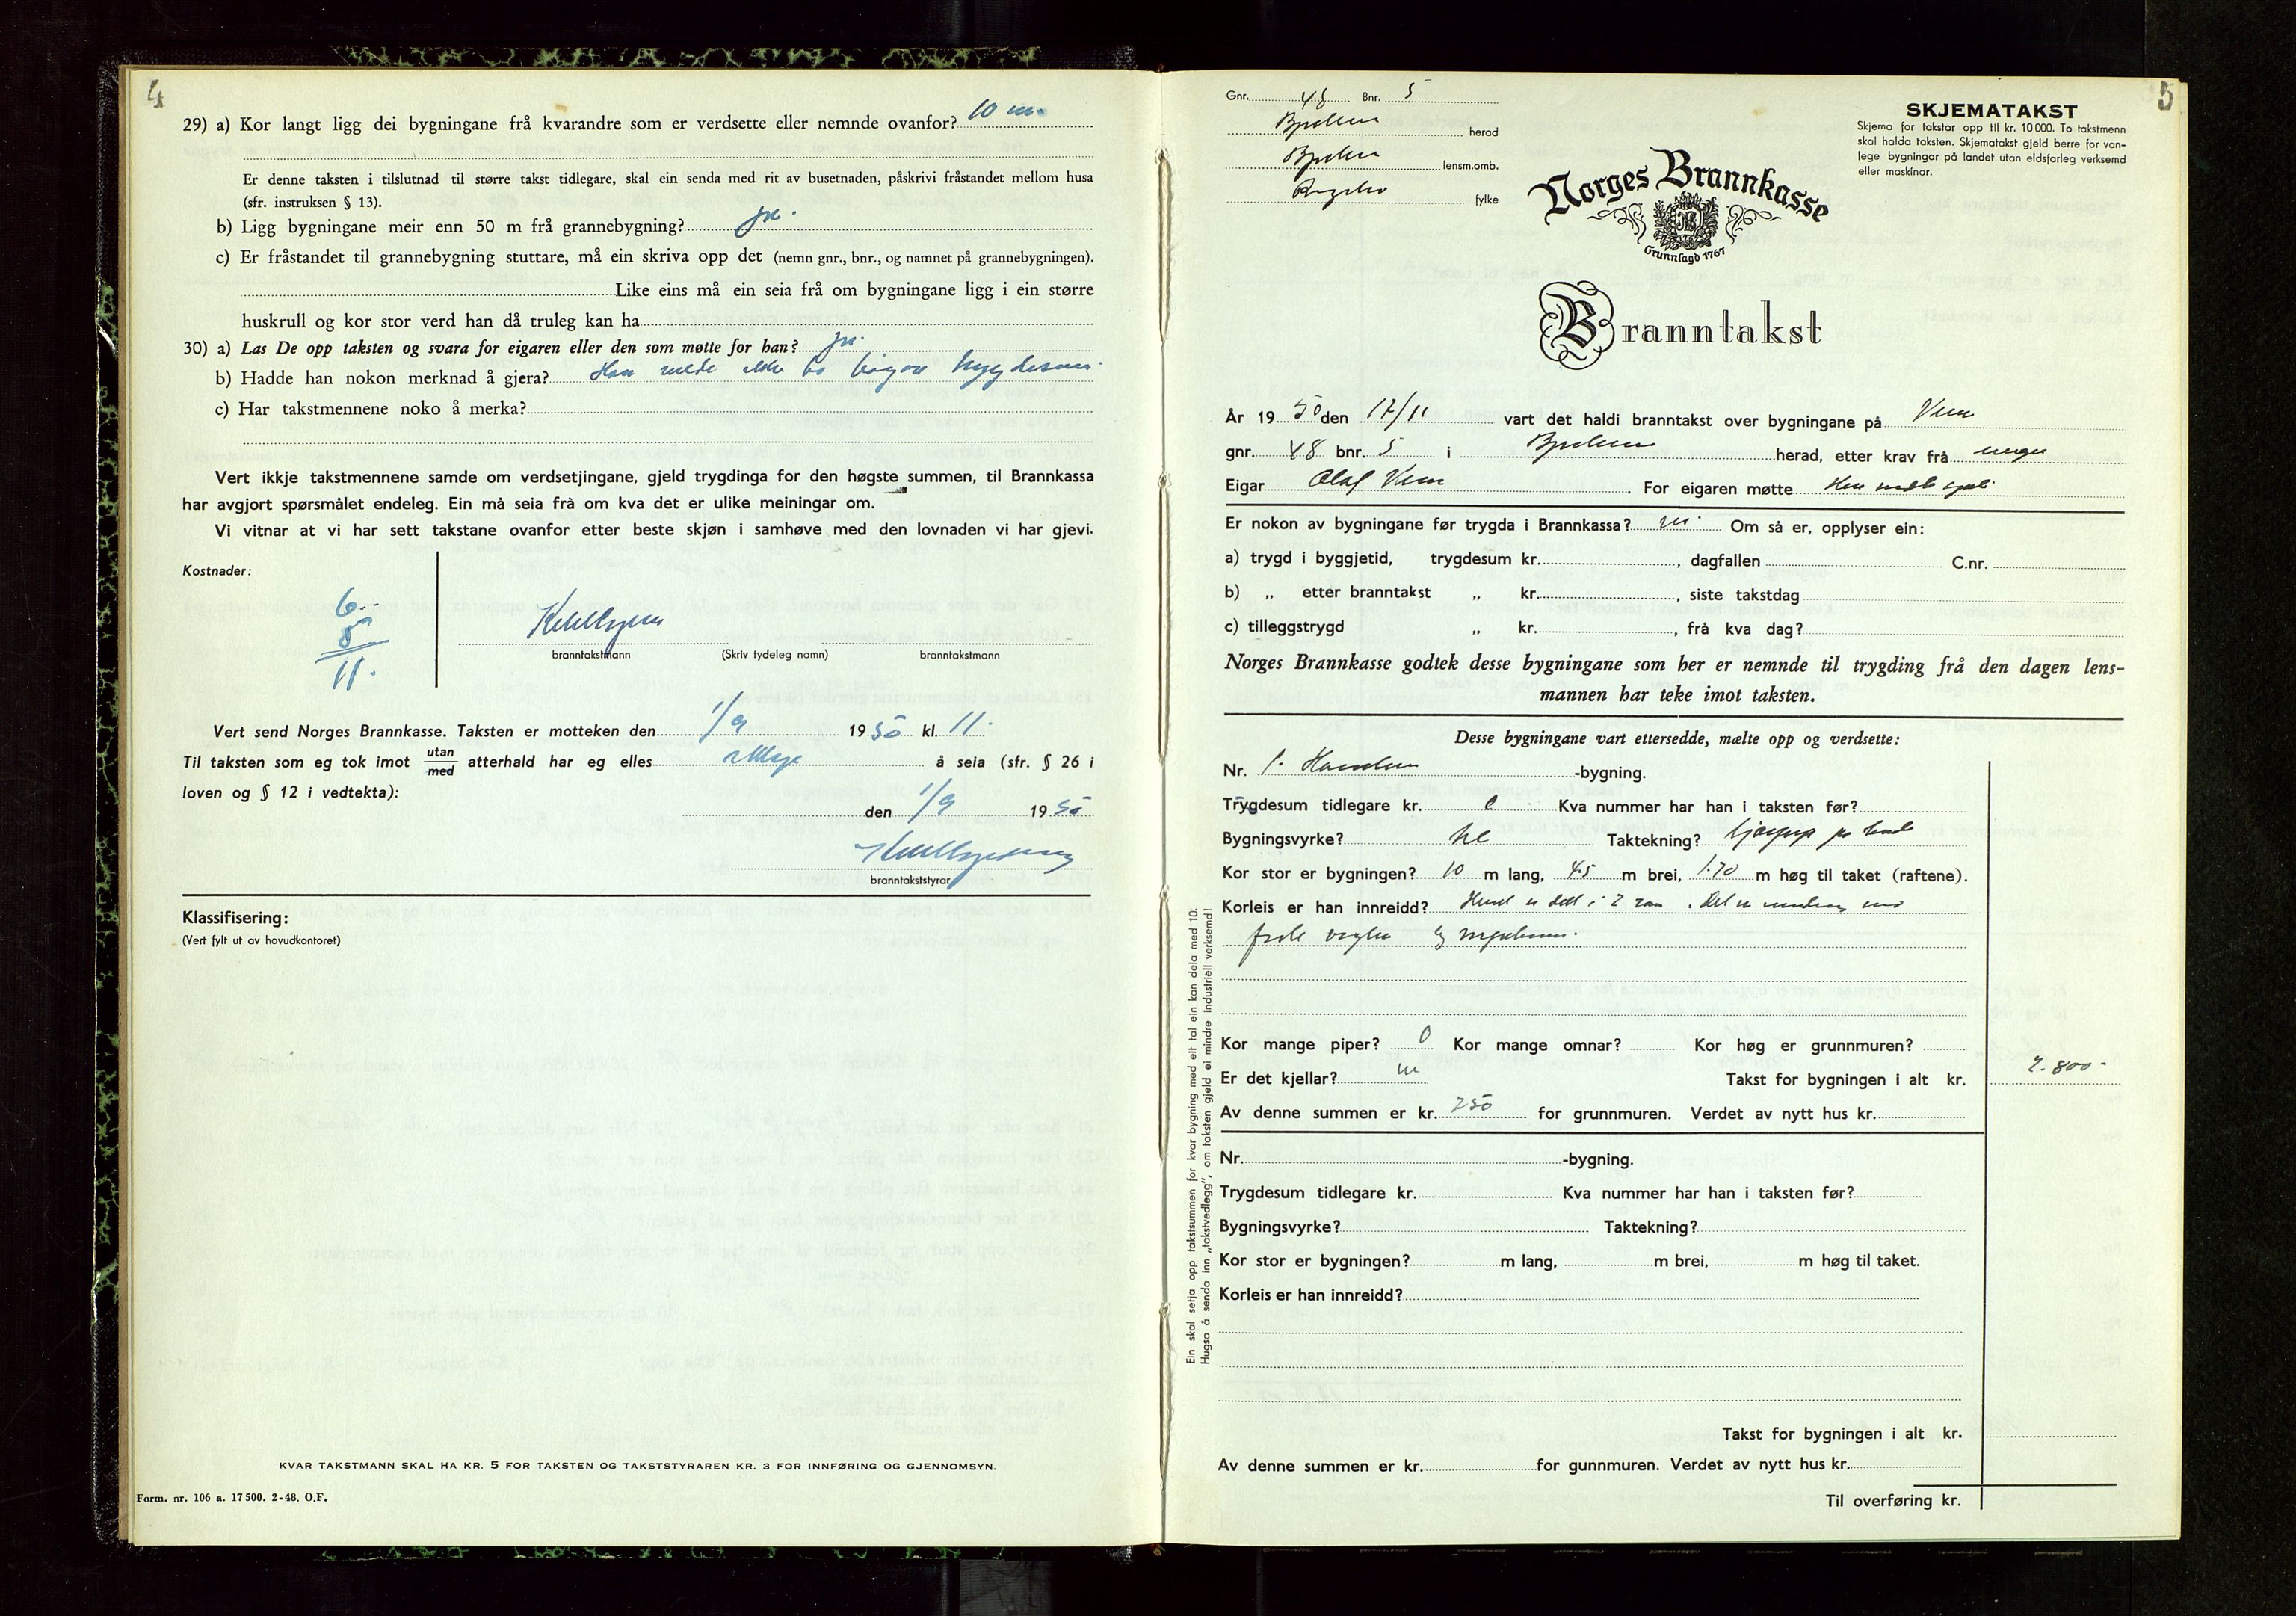 4
29) a) Kor langt ligg dei bygningane frå kvarandre som er verdsette eller nemnde ovanfor? 10 m.
Er denne taksten i tilslutnad til større takst tidlegare, skal ein senda med rit av busetnaden, påskrivi fråstandet mellom husa
(sfr. instruksen § 13).
b) Ligg bygningane meir enn 50 m frå grannebygning? ja.
c) Er fråstandet til grannebygning stuttare, må ein skriva opp det (nemn gnr., bnr., og namnet på grannebygningen).
Like eins må ein seia frå om bygningane ligg i ein større
huskrull og kor stor verd han då truleg kan ha
30) a) Las De opp taksten og svara for eigaren eller den som møtte for han? ja.
b) Hadde han nokon merknad å gjera? Han ikke ha
c) Har takstmennene noko å merka?
Vert ikkje takstmennene samde om verdsetjingane, gjeld trygdinga for den høgste summen, til Brannkassa
har avgjort spørsmålet endeleg. Ein må seia frà om kva det er ulike meiningar om.
Vi vitnar at vi har sett takstane ovanfor etter beste skjøn i samhøve med den lovnaden vi har gjevi.
Kostnader:
6.-
5
11.
branntakstmann (Skriv tydeleg namn) branntakstmann
Vert send Norges Brannkasse. Taksten er motteken den 1/9 1950 kl. 11.
Til taksten som eg tok imot utan/med atterhald har eg elles å seia (sfr. § 26 i
loven og § 12 i vedtekta):
den 1/9 1950
branntakststyrar
Klassifisering:
(Vert fylt ut av hovudkontoret)
KVAR TAKSTMANN SKAL HA KR. 5 FOR TAKSTEN OG TAKSTSTYRAREN KR. 3 FOR INNFØRING OG GJENNOMSYN.
Form. nr. 106 a. 17 500. 2-48. O.F.
5
Gnr. 48 Bnr. 5
herad
lensm.omb.
Rogaland fylke
SKJEMATAKST
Skjema for takstar opp til kr. 10 000. To takstmenn
skal halda taksten. Skjematakst gjeld berre for van-
lege bygningar på landet utan eldsfarleg verksemd
eller maskinar.
Norges Brannkasse
Grunnlagd 1767
Branntakst
År 1950 den 17/11 vart det haldi branntakst over bygningane på
gnr. 48 bnr. 5 i herad, etter krav frå
Eigar Olaf . For eigaren møtte Han
Er nokon av bygningane før trygda i Brannkassa? Om så er, opplyser ein:
a) trygd i byggjetid, trygdesum kr. , dagfallen C.nr.
b) „ etter branntakst „ kr. , siste takstdag
c) tilleggstrygd „ kr. , frå kva dag?
Norges Brannkasse godtek desse bygningane som her er nemnde til trygding frå den dagen lens-
mannen har teke imot taksten.
Desse bygningane vart ettersedde, mælte opp og verdsette:
Nr. 1. -bygning.
Trygdesum tidlegare kr. 0 Kva nummer har han i taksten før?
Bygningsvyrke? Taktekning?
Kor stor er bygningen? 10 m lang, 4.5 m brei, 1.70 m høg til taket (raftene).
Korleis er han innreidd? delt i 2 rom. Det er
og
Kor mange piper? 0 Kor mange omnar? Kor høg er grunnmuren?
Er det kjellar? Takst for bygningen i alt kr. 2.800-
Av denne summen er kr. 250 for grunnmuren. Verdet av nytt hus kr.
Nr. -bygning.
Trygdesum tidlegare kr. Kva nummer har han i taksten før?
Bygningsvyrke? Taktekning?
Kor stor er bygningen? m lang, m brei, m høg til taket.
Korleis er han innreidd?
Takst for bygningen i alt kr.
Av denne summen er kr. for gunnmuren. Verdet av nytt hus kr.
Til overføring kr.
Ein skal setja opp takstsummen for kvar bygning med eit tal ein kan dela med 10.
Hugsa å senda inn „takstvedlegg“, om taksten gjeld ei mindre industriell verksemd!